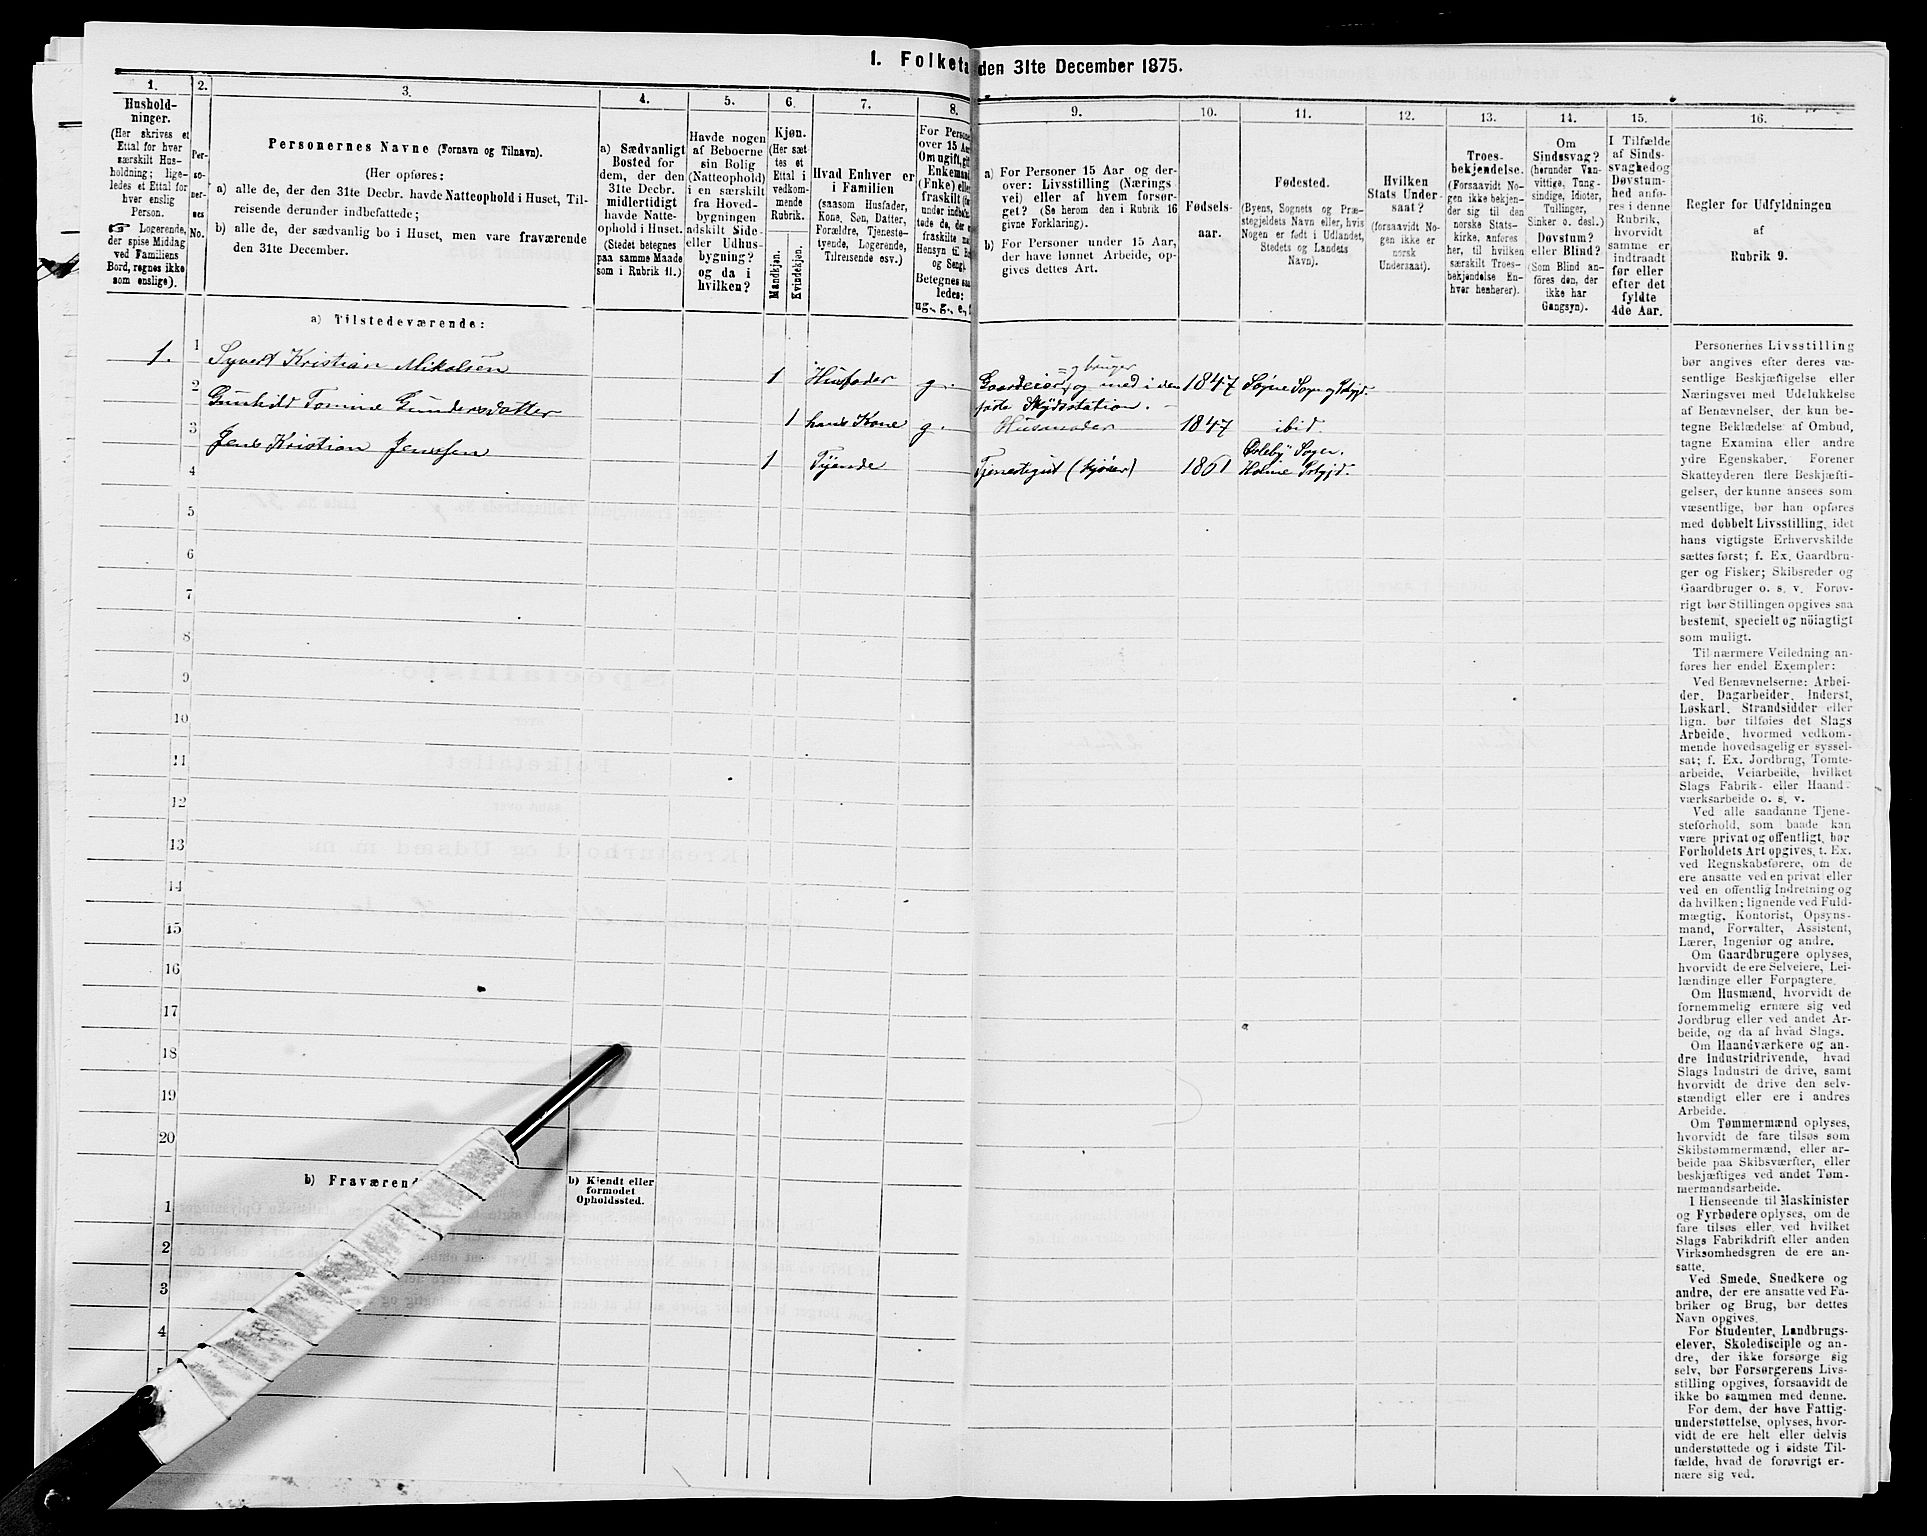 1. Folketa
den 31te December 1875.
1.
Hushold-
ninger.
(Her skrives et
Ettal for hver
særskilt Hus-
holdning; lige-
ledes et Ettal for
hver enslig
Person.
☞ Logerende,
der spise Middag
ved Familiens
Bord, regnes ikke
som enslige).
2.
Per-
so-
ner-
nes
No.
3.
Personernes Navne (Fornavn og Tilnavn).
(Her opføres:
a) alle de, der den 31te Decbr. havde Natteophold i Huset, Til-
reisende derunder indbefattede;
b) alle de, der sædvanlig bo i Huset, men vare fraværende
den 31te December.
4.
a) Sædvanligt
Bosted for
dem, der den
31te Decbr.
midlertidigt
havde Natte-
ophold i Huset.
(Stedet betegnes
paa samme Maade
som i Rubrik 11.)
5.
Havde nogen
af Beboerne
sin Bolig
(Natteophold)
i en særskilt
fra Hoved-
bygningen
adskilt Side-
eller Udhus-
bygning?
og da i
hvilken?
6.
Kjøn.
(Her sæt-
tes et
Ettal i
vedkom-
mende
Rubrik.
Mandkjøn.
Kvindekjøn.
7.
Hvad Enhver er
i Familien
(saasom Husfader,
Kone, Søn, Datter,
Forældre, Tjeneste-
tyende, Logerende,
Tilreisende osv.)
8.
For Persone
over 15 Aar
Om ugift, gift
Enkemand
(Enke) elle
fraskilt
under indbe
tede de, der e
fraskilte
Hensyn til Bo
og Seng).
Betegnes saa
ledes:
ug., g., e.,
9.
a) For Personer 15 Aar og der-
over: Livsstilling (Nærings
vei) eller af hvem forsør-
get? (Se herom den i Rubrik 16
givne Forklaring).
b) For Personer under 15 Aar,
der have lønnet Arbeide, op-
gives dettes Art.
10.
Fødsels-
aar.
11.
Fødested.
(Byens, Sognets og Præ-
stegjeldets Navn eller, hvis
Nogen er født i Udlandet,
Stedets og Landets
Navn).
12.
Hvilken
Stats Under-
saat?
(forsaavidt No-
gen ikke er
norsk
Undersaat).
13.
Troes-
bekjendelse.
(Forsaavidt No-
gen ikke bekjen-
der sig til den
norske Stats-
kirke, anføres
her, til hvilken
særskilt Troes-
bekjendelse En-
hver henhører).
14.
Om
Sindssvag?
(herunder Van-
vittige, Tung-
sindige, Idioter,
Tullinger,
Sinker o. desl.)
Døvstum?
eller Blind?
(Som Blind an-
føres den, der
ikke har
Gangsyn).
15.
I Tilfælde
af Sinds-
svaghed og
Døvstum-
hed anfø-
res i denne
Rubrik,
hvorvidt
samme er
indtraadt
før eller
efter det
fyldte
4de Aar.
16.
Regler for Udfyldningen
af
Rubrik 9.
a) Tilstedeværende:
1. 1 Syvert Kristian Mikalsen 1 Husfader g. Gaardeier og bruger og med i den 1847 Søgne Sogn og Prstgjd.
faste Skydsstation.
2 Gunhild Tomine Gundersdatter 1 hans Kone g. Husmoder 1847 ibid.
3 Jens Kristian Jenssen 1 Tyende Tjenestegut 1861 Øsleby Sogn.
Holme Prstgjd.
4
5
6
7
8
9
10
11
12
13
14
15
16
17
18
19
20
b) Fraværend
b) Kjendt eller
formodet
Opholdssted.
1
2
3
4
5
Personernes Livsstilling
bør angives efter deres væ-
sentlige Beskjæftigelse eller
Næringsvei med Udelukkelse
af Benævnelser, der kun be-
tegne Beklædelse af Ombud,
tagne Examina eller andre
ydre Egenskaber. Forener
Skatteyderen flere Beskjæfti-
gelser, der kunne ansees som
væsentlige, bør han opføres
med dobbelt Livsstilling, idet
hans vigtigste Erhvervskilde
sættes først; f. Ex. Gaardbru-
ger og Fisker; Skibsreder og
Gaardbruger o. s. v. Forøv-
rigt bør Stillingen opgives saa
bestemt, specielt og nöiagtigt
som muligt.
Til nærmere Veiledning an-
føres her endel Exempler:
Ved Benævnelserne: Arbei-
der, Dagarbeider, Inderst,
Løskarl, Strandsidder eller
lign. bør tilføies det Slags
Arbeide, hvormed vedkom-
mende hovedsagelig er syssel-
sat; f. Ex. Jordbrug, Tomte-
arbeide, Veiarbeide, hvilket
Slags Fabrik- eller Haand-
værksarbeide o. s. v.
Ved alle saadanne Tjene-
steforhold, som baade kan
være privat og offentligt, bør
Forholdets Art opgives, t. Ex.
ved Regnskabsførere, om de
ere ansatte ved en privat eller
ved en offentlig Indretning og
da hvilken; lignende ved Fuld-
mægtig, Kontorist, Opsyns-
mand, Forvalter, Assistent,
Lærer, Ingeniør og andre.
Om Gaardbrugere oplyses,
hvorvidt de ere Selveiere, Lei-
lændinge eller Forpagtere.
Om Husmænd, hvorvidt de
fornemmelig ernære sig ved
Jordbrug eller ved andet Ar-
beide, og da af hvad Slags.
Om Haandværkere og an-
dre Industridrivende, hvad
Slags Industri de drive, samt
hvorvidt de drive den selv-
stændigt eller ere i andres
Arbeide.
Om Tømmermænd oplyses,
hvorvidt de fare tilsøs som
Skibstømmermænd, eller ar-
beide paa Skibsværfter, eller
beskjæftiges ved andet Tøm-
mermandsarbeide.
I Henseende til Maskinister
og Fyrbødere oplyses, om de
fare tilsøs eller ved hvilket
Slags Fabrikdrift eller anden
Virksomhedsgren de ere an-
satte.
Ved Smede, Snedkere og
andre, der ere ansatte ved Fa-
briker og Brug, bør dettes
Navn opgives.
For Studenter, Landbrugs-
elever, Skoledisciple og an-
dre, der ikke forsørge sig
selv, bør Forsørgerens Livs-
stilling opgives, forsaavidt de
ikke bo sammen med denne.
For dem, der have Fattig-
understøttelse, oplyses, hvor-
vidt de ere helt eller delvis
understøttede og i sidste Til-
fælde, hvad de forøvrigt er-
nære sig ved.